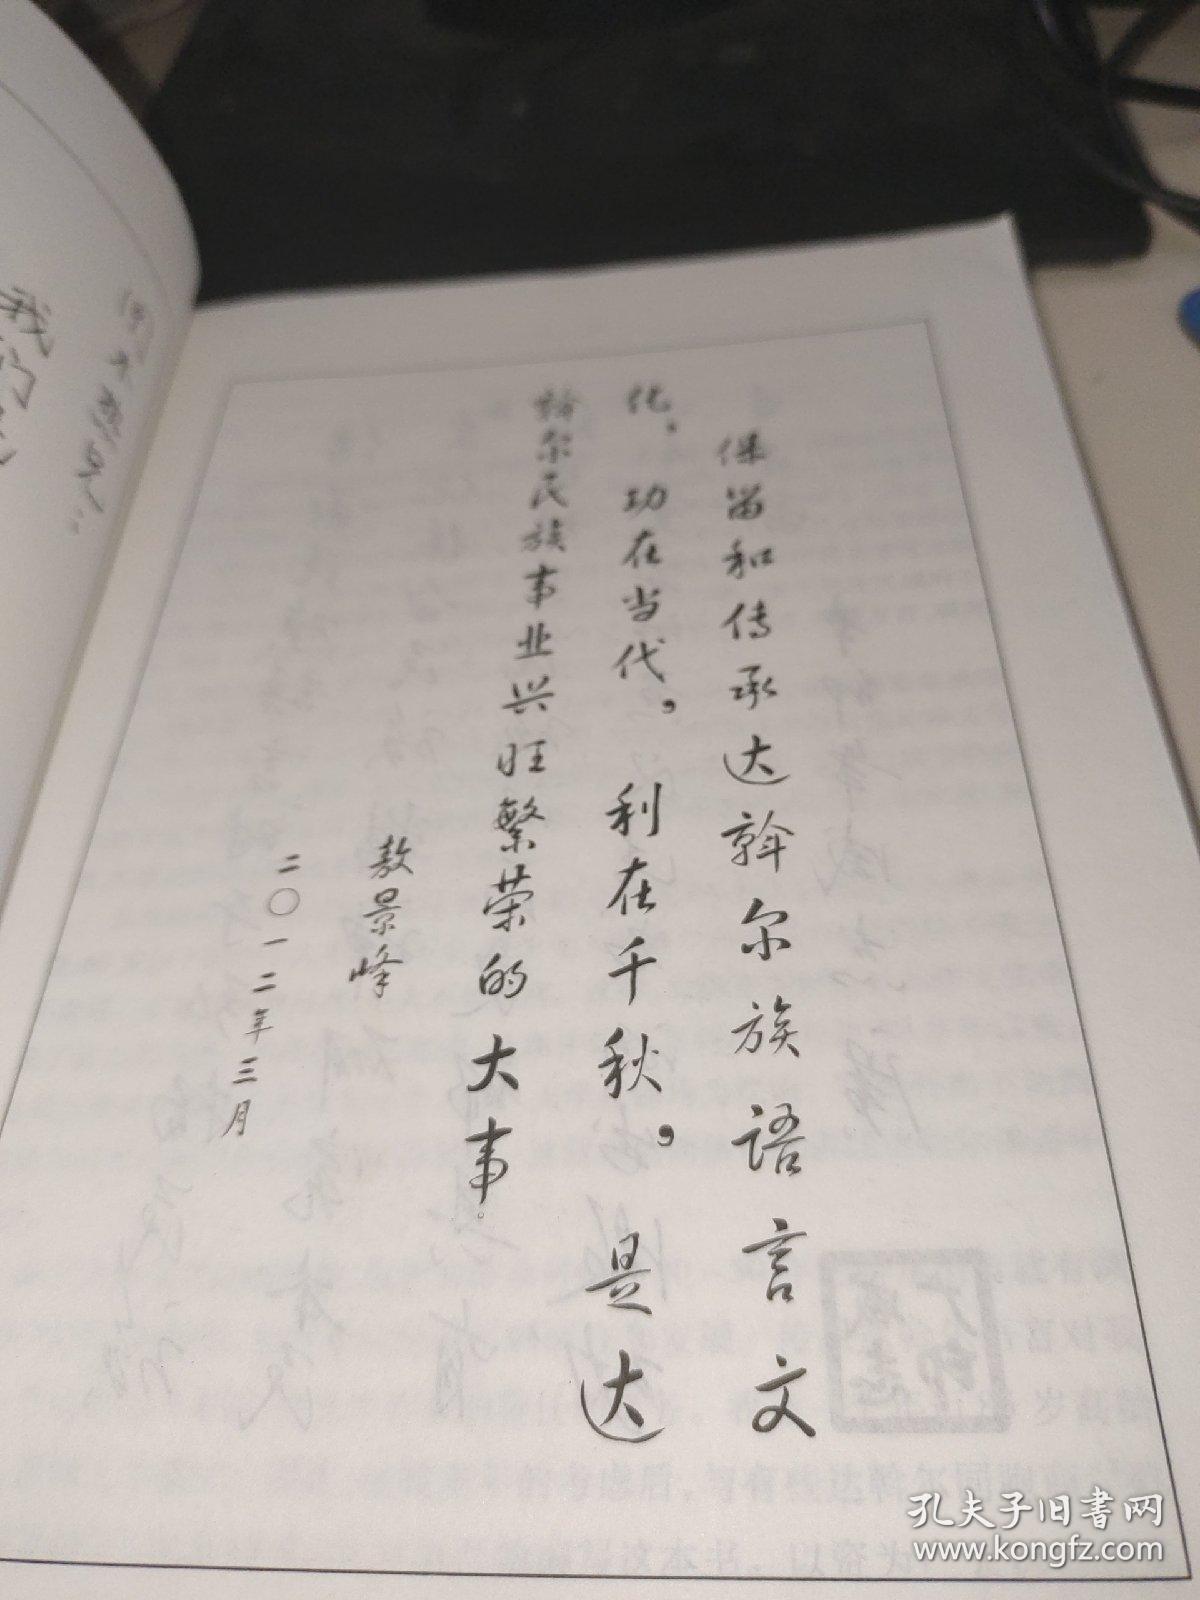 保留和传承达斡尔族语言文
化，功在当代，利在千秋，是达
斡尔民族事业兴旺繁荣的大事。
敖景峰
二〇一二年三月
我们
孔夫子旧书网
www.kongfz.com